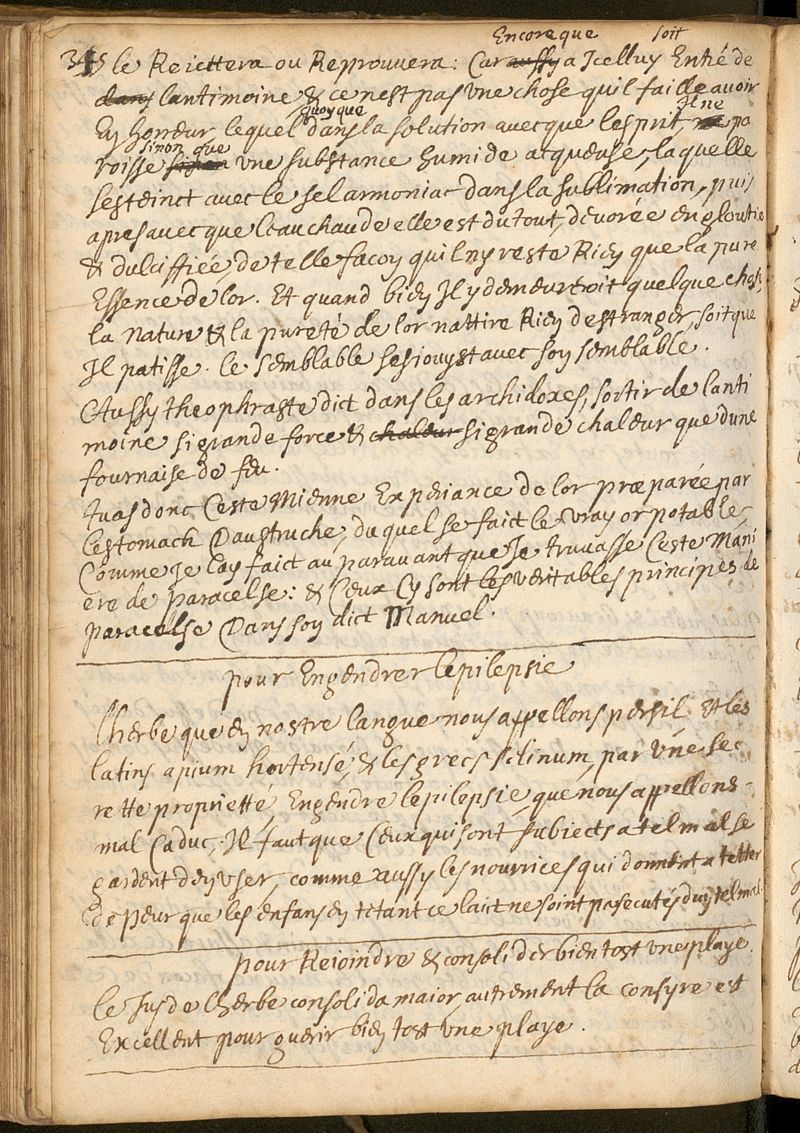 Encore que soit
345 le Reiettera ou Reprouvera: Car aussy a Icelluy Entré de
dans lantimoine & ce nest pas une chose quil faille avoir
quoy que Il ne
En honeur, lequel dans la solution avecque lesprit, ne pa
sinon que
roisse sinon une substance humide acqueuse, laquelle
sesteinct avec le sel armoniac dans la sublimation, puis
apres avecque leau chaude elle est du tout, devorée engloutie
& dulciffiée de telle facon quil ny reste Rien que la pure
Essence de lor. Et quand bien Il y demeureroit quelque chose,
la nature & la pureté de lor nattire Rien destranger, soit que
Il patisse. le semblable sesiouyst avec son semblable.
Aussy theophraste dict dans les archidoxes, sortir de lanti
moine si grande force & chaleur si grande chaleur que dune
fournaise de feu.
tu as donc Ceste Mienne Experiance de lor præparée par
lestomach Daustruche, du quel se faict le vray or potable,
Comme Je lay faict au paravant que Je truvasse Ceste Mani
ere de paracelse: & Ceux Cy sont les veritables principes de
paracelse Dans son dict Manuel.
pour Engendrer lepilepsie
Lherbe que en nostre langue nous appellons persil & les
latins apium hortensé, & les grecs selinum, par une sec
rette proprietté, Engendre lepilepsie, que nous appellons
mal Caduc, Il faut que Ceux qui sont subiects a tel mal se
gardent den user, comme aussy les nourrices qui donnent a tetter
de peur que les enfans en tetant ce laict ne soint pas du tel mal.
pour Reioindre & consolider bien tost une playe.
le Jus de lherbe consolida maior, autrement la consyre est
Excellent pour guerir bien tost une playe.